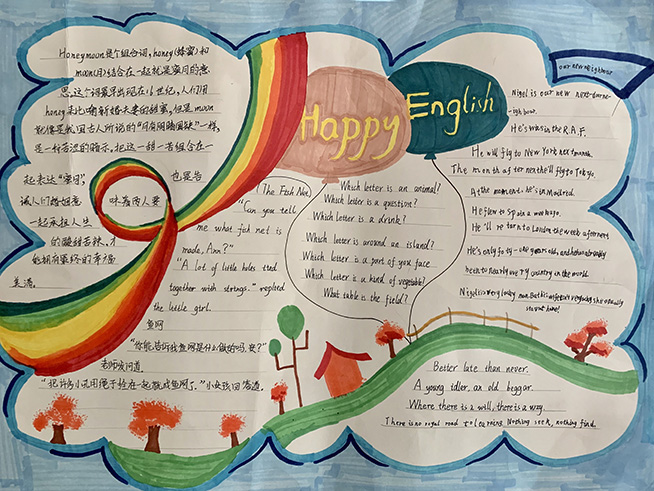 Honeymoon 是个组合词, honey(蜂蜜) 和
moon(月) 结合在一起就是蜜月的意
思,这个词最早出现在16世纪,人们用
honey 来比喻新婚夫妻的甜蜜,但是moon
就像是我国古人所说的"月有阴晴圆缺"一样,
是一种苦涩的暗示,把这一甜一苦组合在一
起来表达"蜜月",
也要告
诫人们婚姻意
味着两人要
一起承担人生
的酸甜苦辣,才
能拥有最终的幸福
美满
Happy
English
(The Fish Net)
"Can you tell
me what fish net is
made, Ann?"
"A lot of little holes tied
together with strings." replied
the little girl.
鱼网
"你能告诉我鱼网是什么做的吗,安?"
老师发问道.
"把许多小孔用绳子拴在一起就成鱼网了."小女孩回答道.
Which letter is an animal?
Which letter is a question?
Which letter is a drink?
Which letter is around an island?
Which letter is a part of you face
Which letter is a kind of vegetable?
What table is the field?
our new neighbour
Nigel is our new next-door
He's was in the R.A.F.
He will fly to New York next month.
The month after next he'll fly to Tokyo.
At the moment, he's in Madrid.
He flew to Spain a week ago.
He'll return to London the week after next.
He's only forty-one years old, and he has already
been to nearly every country in the world.
Nigel is a very lucky man. But his wife isn't very lucky. She usually
stays at home!
Better late than never.
A young idler, an old beggar.
Where there is a will, there is a way.
There is no royal road to learning. Nothing seek, nothing find.